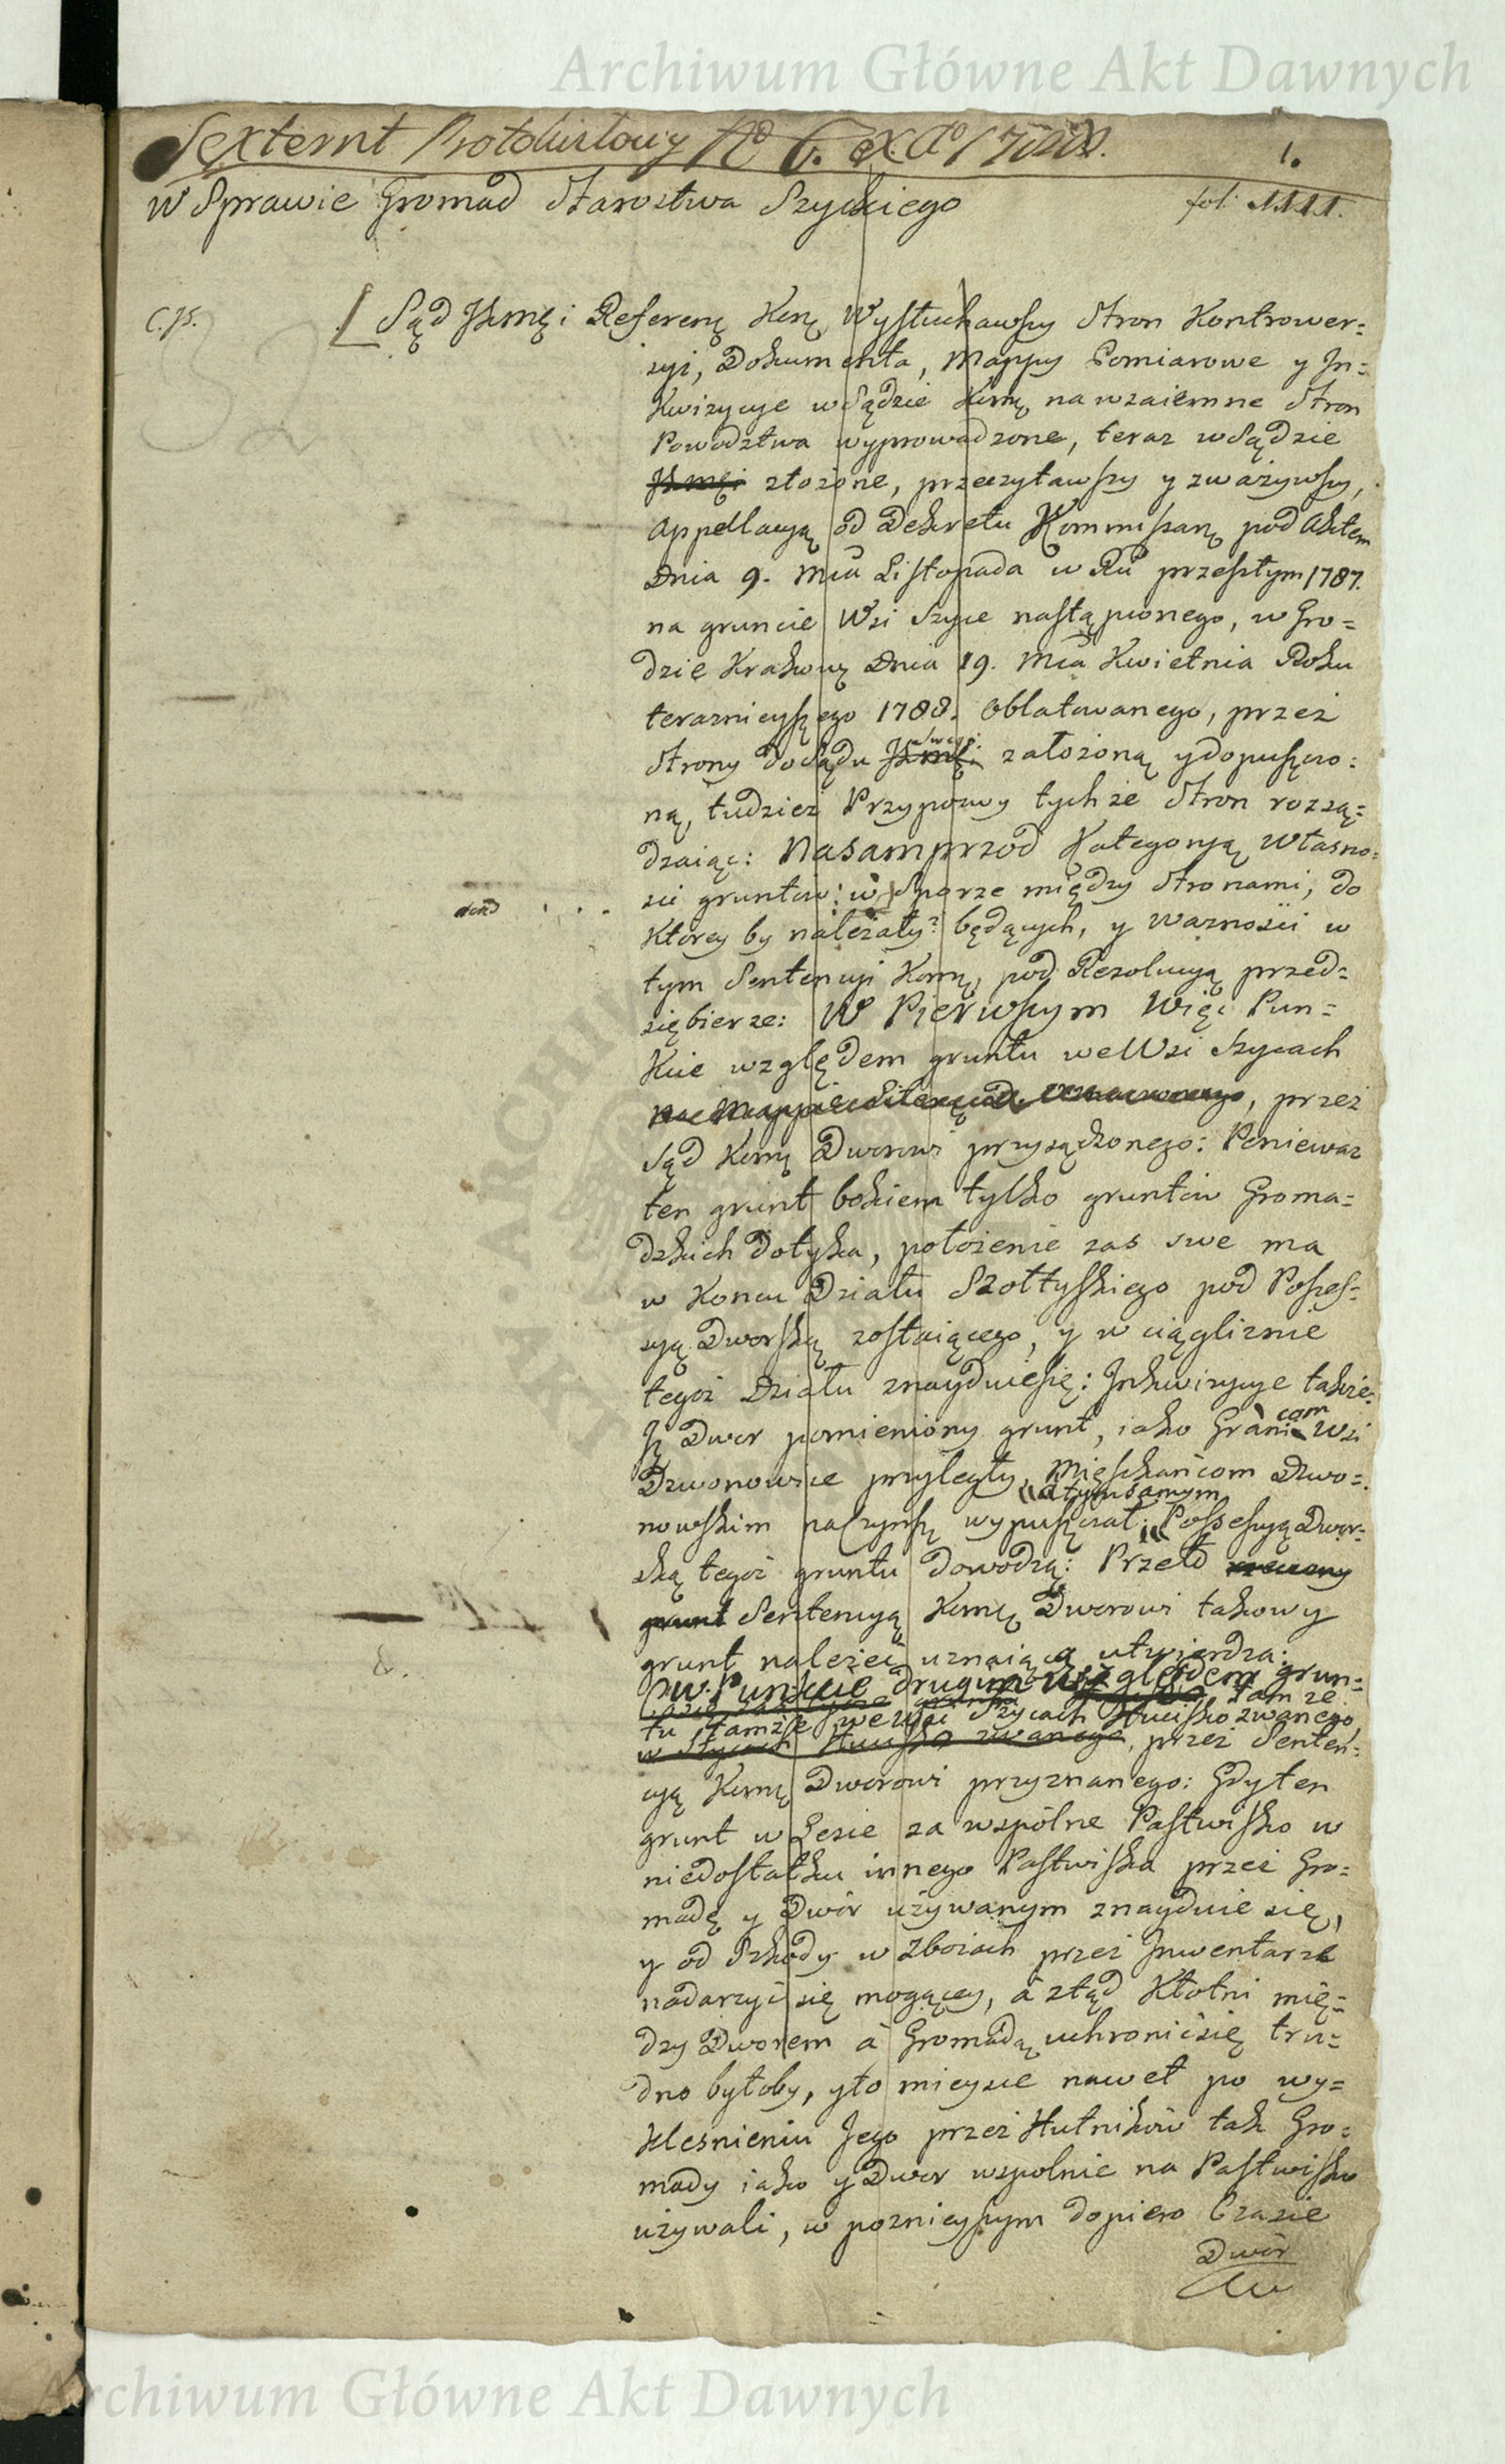 Archiwum Główne Akt Dawnych
Sexternt Protokułowy No 6. ex Ao 1788.
1.
W Sprawie Gromad Starostwa Szyckiego
fol: 1111.
C. JS.
Sąd JKmci Referen: Kor: Wysłuchawszy Stron Kontrower=
syi, Dokumenta, Mappy Pomiarowe y In=
kwizycye w Sądzie Kom: na wzaiemne Stron
Powodztwa wyprowadzone, teraz w Sądzie
JKmci złożone, przeczytawszy y zważywszy,
Appellacyą od Dekretu Kommissar: pod Aktem
Dnia 9. Mca Listopada w Ru przeszłym 1787.
na gruncie Wsi Szyce nastąpionego, w Gro=
dzie Krakow: Dnia 19. Mca Kwietnia Roku
teraznieyszego 1788. oblatowanego, przez
Strony do Sądu JKmci założoną y dopuszczo=
ną, tudzież Przypozwy tychże Stron rozsą=
dzaiąc: Nasamprzod Kategoryą Własno=
sci gruntow: w Sporze między Stronami, do
ktorey by należały? będących, y ważności w
tym Sentencyi Kom: pod Rezolucyą przed=
siębierze: W Pierwszym Więc Pun=
kcie względem gruntu we Wsi Szycach
na Mappie Literą, przez
Sąd Kom: Dworowi przysądzonego: Ponieważ
ten grunt bokiem tylko gruntow Groma=
dzkich dotyka, położenie zas swe ma
w Koncu Działu Szołtyskiego pod Posses=
syą Dworską zostaiącego, y w ciągliznie
tegoż Działu znayduie się: Inkwizycye także
Iż Dwor pomieniony grunt, iako Granicom Wsi
Dzwonowice przyległy, Mieszkańcom Dzwo=
nowskim na Czynsz wypuszczał, a tym samym Possessyą Dwor=
ską tegoż gruntu dowodzą: Przeto
grunt Sentencyą Kom: Dworowi takowy
grunt należeć uznaiącą utwierdza:
W Punkcie drugim względem grun=
tu tamże we Wsi Szycach Hucisko zwanego
w Szycach Hucisko zwanego, przez Senten=
cyą Kom: Dworowi przyznanego: Gdy ten
grunt w Lesie za wspólne Pastwisko w
niedostatku innego Pastwiska przez Gro=
madę y Dwór używanym znayduie się,
y od Szkody w Zbożach przez Inwentarze
nadarzyć się mogącey, a ztąd Kłotni mię=
dzy Dworem a Gromadą uchronić się tru=
dno byłoby, y to mieysce nawet po wy=
klesnieniu Jego przez Hutników tak Gro=
mady iako y Dwor wspolnie na Pastwisko
używali, w poznieyszym dopiero Czasie
Dwór
Archiwum Główne Akt Dawnych